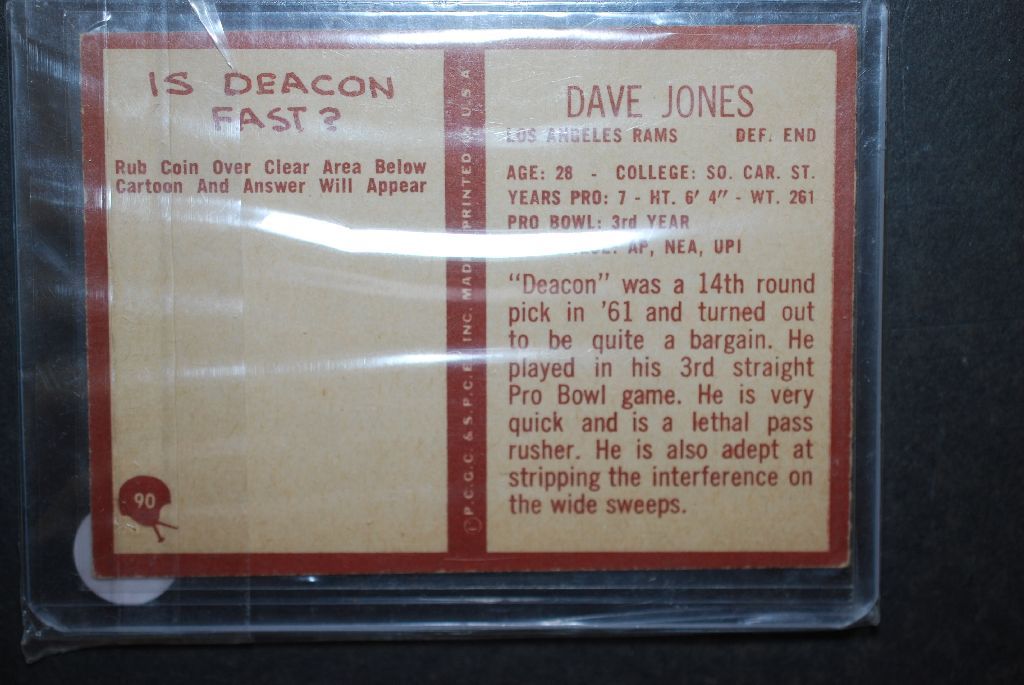 IS DEACON
FAST?
Rub Coin Over Clear Area Below
Cartoon And Answer Will Appear
90
©P.C.G.C. & S.P.C.E. INC. MADE PRINTED IN U.S.A
DAVE JONES
LOS ANGELES RAMS DEF. END
AGE: 28 - COLLEGE: SO. CAR. ST.
YEARS PRO: 7 - HT. 6' 4" - WT. 261
PRO BOWL: 3rd YEAR
AP, NEA, UPI
"Deacon" was a 14th round
pick in '61 and turned out
to be quite a bargain. He
played in his 3rd straight
Pro Bowl game. He is very
quick and is a lethal pass
rusher. He is also adept at
stripping the interference on
the wide sweeps.